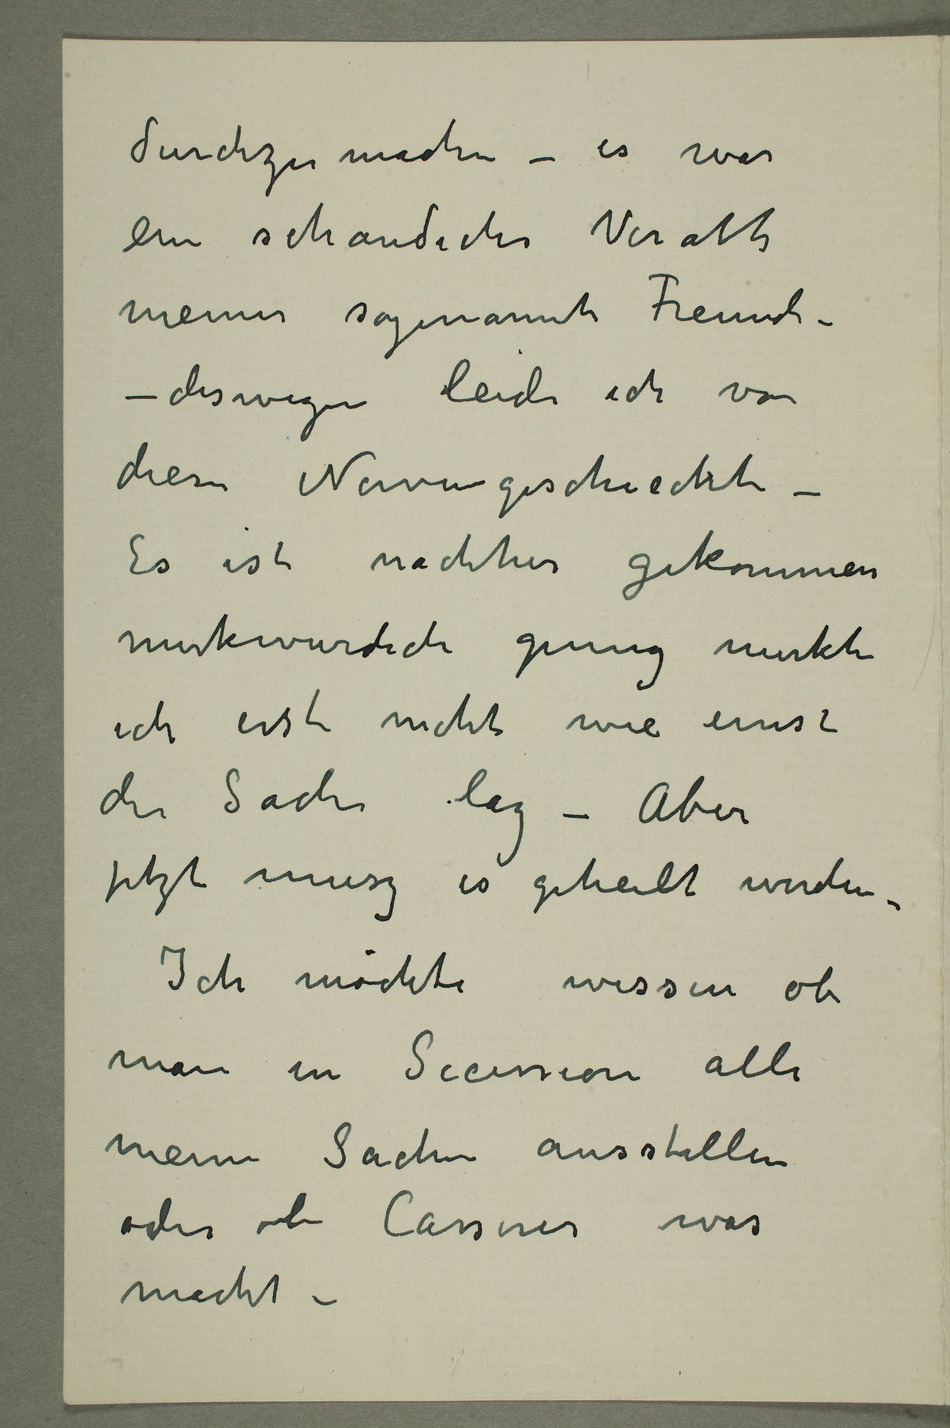 durchzumachen – es war
ein schandliches Veratt
meiner sogenannte Freunde –
– deswegen leide ich von
diesen Nervengeschichte –
Es ist nachher gekommen
merkwurdich genug merkte
ich erst nicht wie ernst
die Sache lag – Aber
jetzt musz es geheilt werden –
Ich möchte wissen ob
man in Secession alle
meine Sachen ausstellen
oder ob Cassirer was
macht –